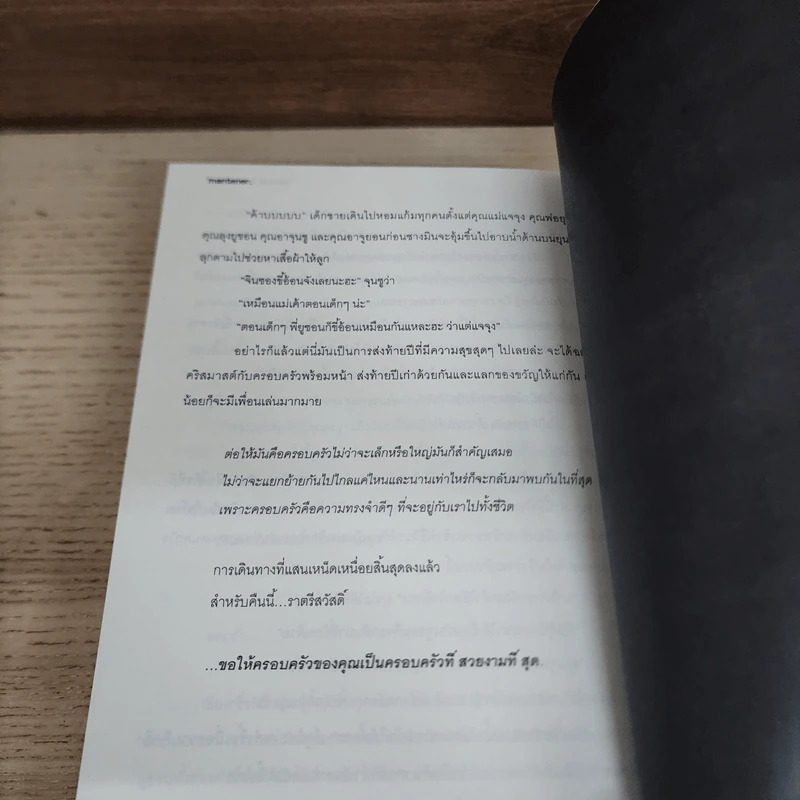 mantener.
"ค้าบบบบบ" เด็กชายเดินไปหอมแก้มทุกคนตั้งแต่คุณแม่แจจุง คุณพ่อยุ
คุณลุงยูชอน คุณอาจุนซู และคุณอาจูยอนก่อนชางมินจะอุ้มขึ้นไปอาบน้ำด้านบนยุน
ลุกตามไปช่วยหาเสื้อผ้าให้ลูก
"จินซองขี้อ้อนจังเลยนะฮะ" จุนซูว่า
"เหมือนแม่เค้าตอนเด็กๆ น่ะ"
"ตอนเด็กๆ พี่ยูชอนก็ขี้อ้อนเหมือนกันแหละฮะ ว่าแต่แจจุง"
อย่างไรก็แล้วแต่นี่มันเป็นการส่งท้ายปีที่มีความสุขสุดๆ ไปเลยล่ะ จะได้
คริสมาสต์กับครอบครัวพร้อมหน้า ส่งท้ายปีเก่าด้วยกันและแลกของขวัญให้แก่กัน
น้อยก็จะมีเพื่อนเล่นมากมาย
ต่อให้มันคือครอบครัวไม่ว่าจะเล็กหรือใหญ่มันก็สำคัญเสมอ
ไม่ว่าจะแยกย้ายกันไปไกลแค่ไหนและนานเท่าไหร่ก็จะกลับมาพบกันในที่สุด
เพราะครอบครัวคือความทรงจำดีๆ ที่จะอยู่กับเราไปทั้งชีวิต
การเดินทางที่แสนเหน็ดเหนื่อยสิ้นสุดลงแล้ว
สำหรับคืนนี้...ราตรีสวัสดิ์
...ขอให้ครอบครัวของคุณเป็นครอบครัวที่ สวยงามที่ สุด